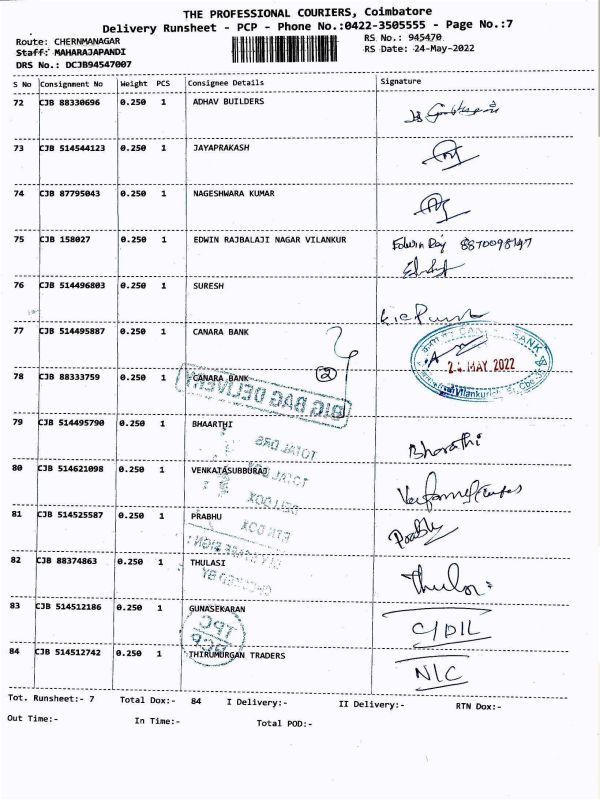 THE PROFESSIONAL COURIERS, Coimbatore
Delivery Runsheet - PCP - Phone No.:0422-3505555 - Page No.:7
Route: CHERNMANAGAR
RS No.: 945470
Staff: MAHARAJAPANDI
RS Date: 24-May-2022
DRS No.: DCJB94547007
S No Consignment No Weight PCS Consignee Details Signature
72 CJB 88330696 0.250 1 ADHAV BUILDERS
73 CJB 514544123 0.250 1 JAYAPRAKASH
74 CJB 87795043 0.250 1 NAGESHWARA KUMAR
75 CJB 158027 0.250 1 EDWIN RAJBALAJI NAGAR VILANKUR Edwin Raj 8870098147
76 CJB 514496803 0.250 1 SURESH
77 CJB 514495887 0.250 1 CANARA BANK
BANK
MAY 2022
78 CJB 88333759 0.250 1 CANARA BANK 2
Vilankurichi
BIG BAG DELIVERY
79 CJB 514495790 0.250 1 BHAARTHI Bharathi
TOTAL DRS
80 CJB 514621098 0.250 1 VENKATASUBBURAJ
TOTAL DOX
DELI DOX
81 CJB 514525587 0.250 1 PRABHU Prabhu
RTN DOX
82 CJB 88374863 0.250 1 THULASI
CHECKED BY
83 CJB 514512186 0.250 1 GUNASEKARAN C/DIL
TPC
PCP
84 CJB 514512742 0.250 1 THIRUMURGAN TRADERS NIC
Tot. Runsheet:- 7 Total Dox:- 84 I Delivery:- II Delivery:- RTN Dox:-
Out Time:- In Time:- Total POD:-